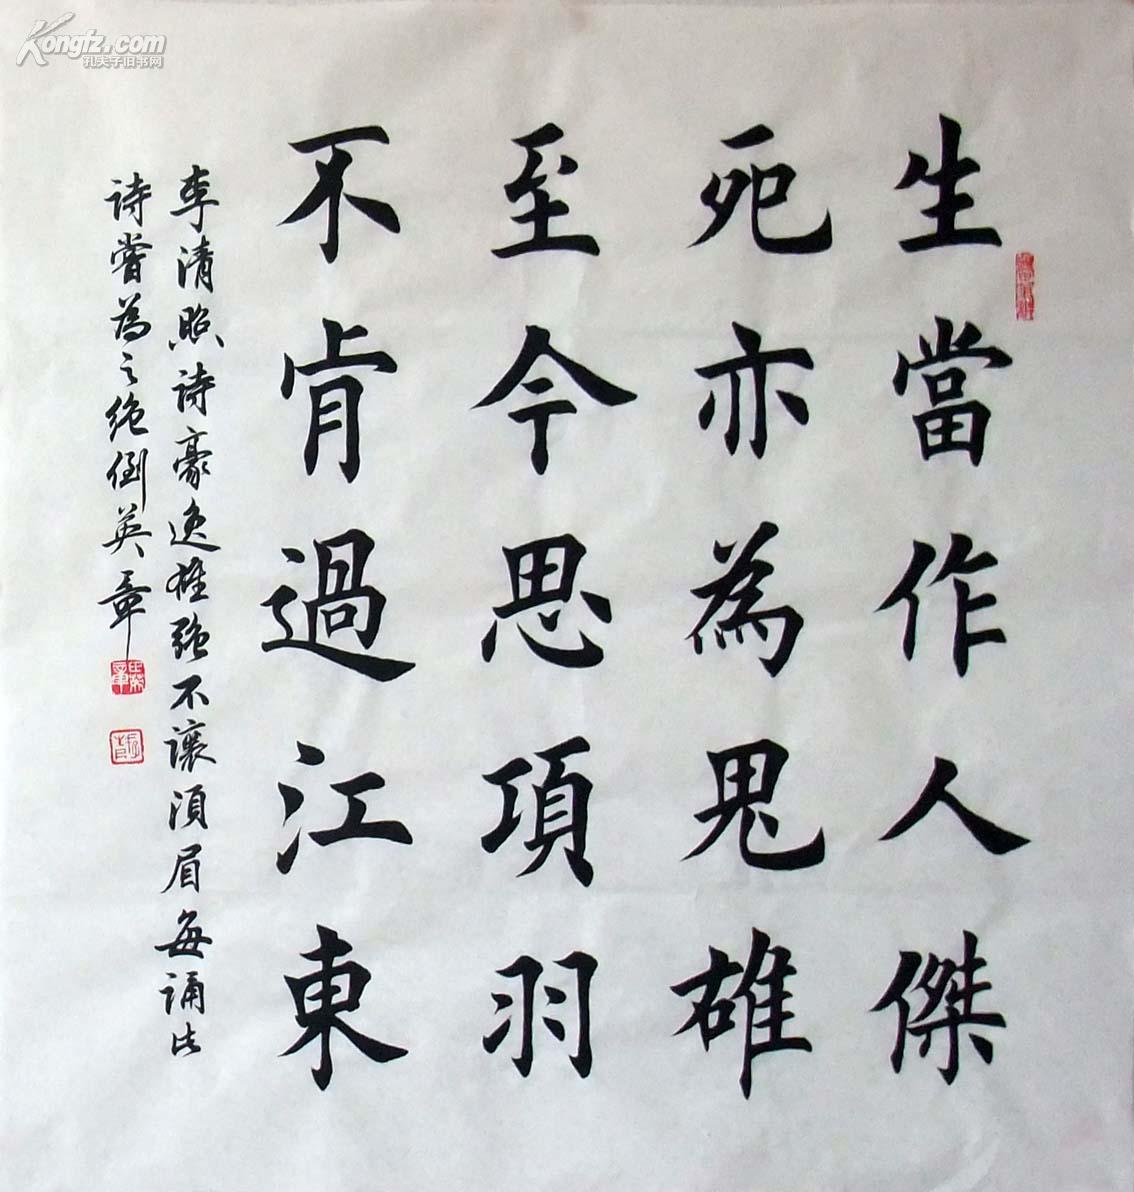 生當作人傑
死亦為鬼雄
至今思項羽
不肯過江東
李清照诗豪逸雄强不讓須眉每誦此
诗嘗為之絶倒英章
Kongfz.com
孔夫子旧书网